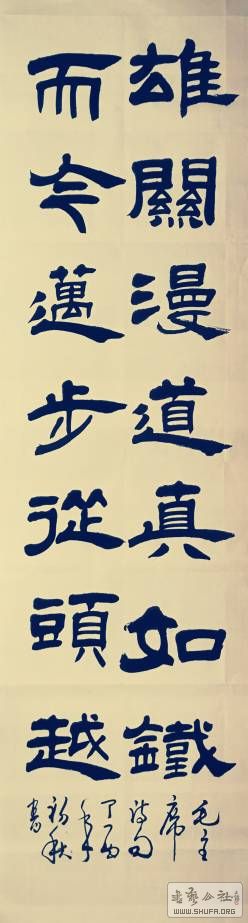 雄關漫道真如鐵
而今邁步從頭越
毛主
席
詩句
年
初秋
書
書藝公社
WWW.SHUFA.ORG